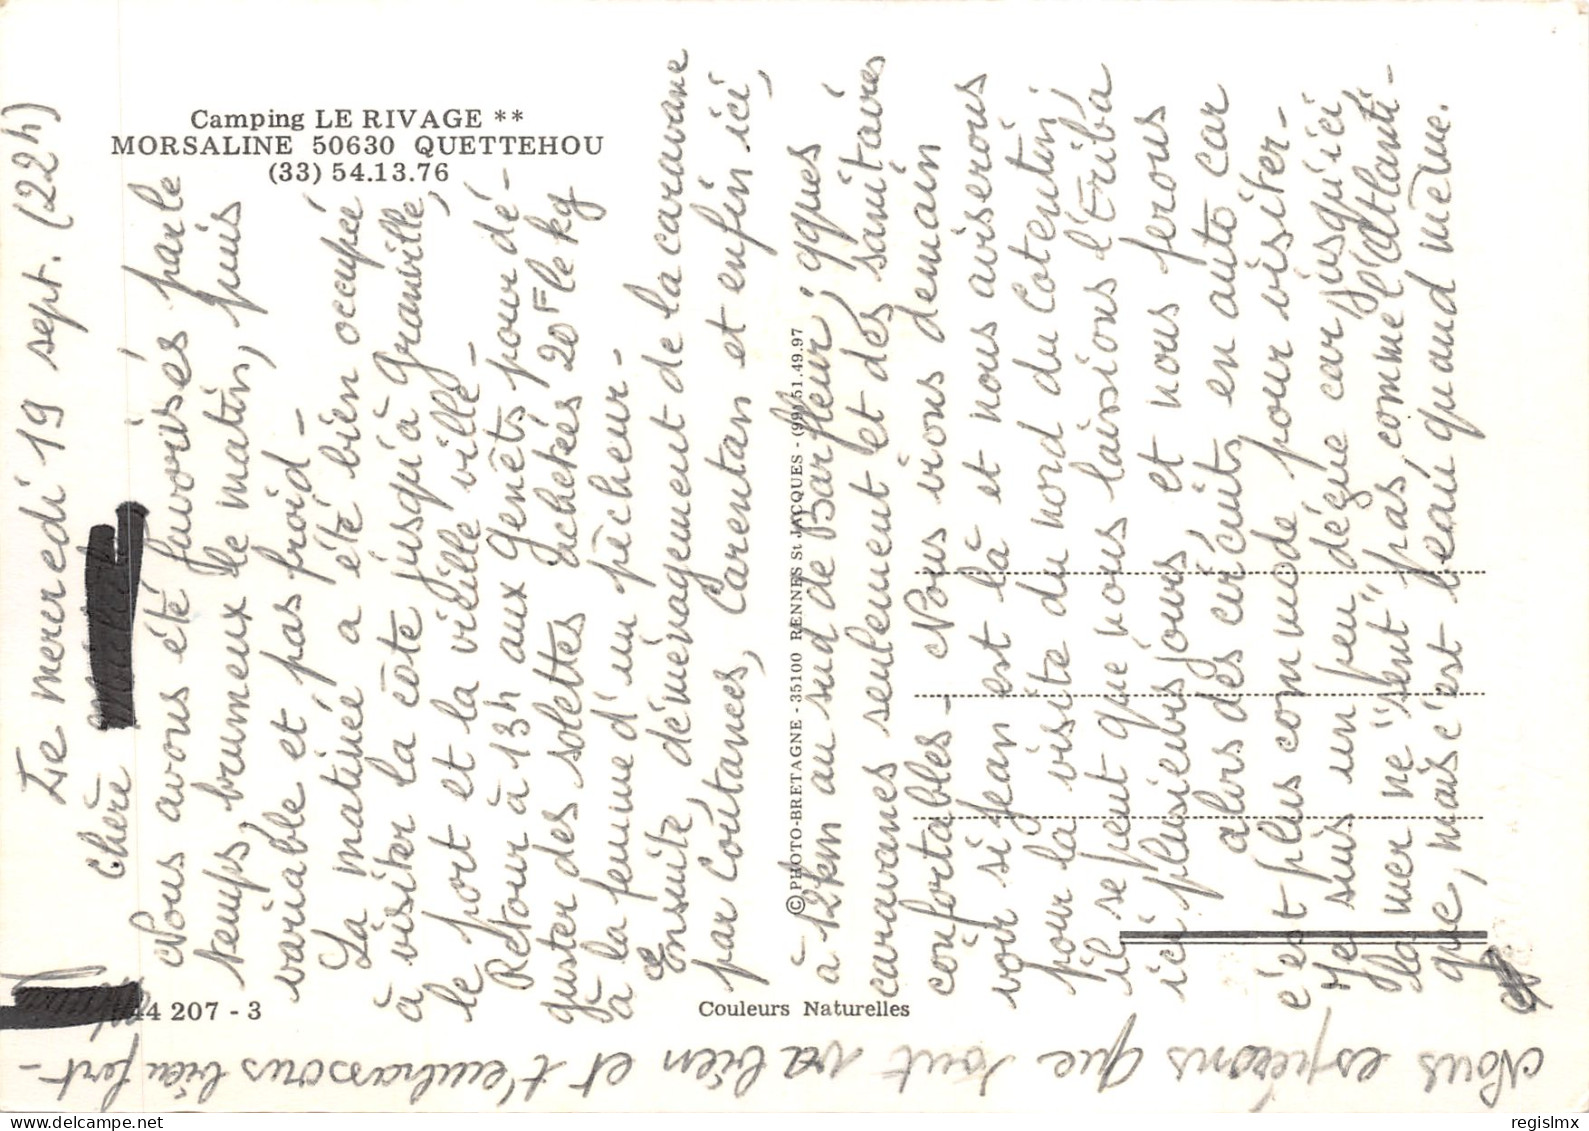 Camping LE RIVAGE **
MORSALINE 50630 QUETTEHOU
(33) 54.13.76
Le mercredi 19 sept. (22h)
Chère
Nous avons été favorisés par le
temps, brumeux le matin, puis
variable et pas froid -
La matinée a été bien occupée
à visiter la côte jusqu'à Granville,
le port et la vieille ville -
Retour à 13h aux Genêts pour dé-
guster des solettes achetées 20F le kg
à la femme d'un pêcheur -
Ensuite, déménagement de la caravane
par Coutances, Carentan et enfin ici,
à 12km au sud de Barfleur; qques
caravanes seulement et des sanitaires
confortables - Nous irons demain
voir si Jean est là et nous aviserons
pour la visite du nord du Cotentin;
il se peut que nous laissions l'Eriba
ici plusieurs jours, et nous ferons
alors des circuits en auto car
c'est plus commode pour visiter -
Je suis un peu déçue car jusqu'ici
la mer ne "sent" pas comme l'Atlanti-
que, mais c'est beau quand même.
Nous espérons que tout va bien et t'embrassons bien fort -
© PHOTO-BRETAGNE - 35100 RENNES St JACQUES - (99) 51.49.97
44 207 - 3
Couleurs Naturelles
regislmx
delcampe.net